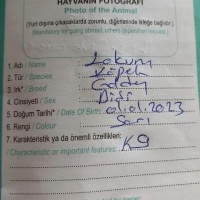 HAYVANIN FOTOĞRAFI
Photo of the Animal
(Yurt dışına çıkacaklarda zorunlu, diğerlerinde isteğe bağlıdır.)
Mandatory for going abroad, others optional
1. Adı / Name : Lokum
2. Tür / Species : Köpek
3. Irk* / Breed : Golden
4. Cinsiyeti / Sex : Dişi
5. Doğum Tarihi* / Date Of Birth : 01.01.2023
6. Rengi / Colour : Sarı
7. Karakteristik ya da önemli özellikleri: K9
/ Characteristic or important features: